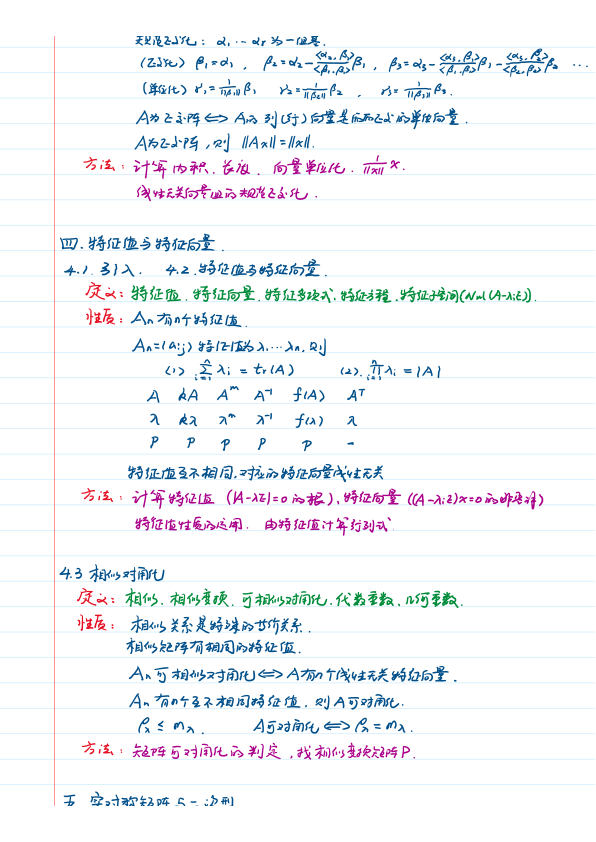 规范正交化: α₁, ⋯ αr 为一组基.
(正交化) β₁=α₁, β₂=α₂-<α₂,β₁>/<β₁,β₁>β₁, β₃=α₃-<α₃,β₁>/<β₁,β₁>β₁-<α₃,β₂>/<β₂,β₂>β₂ ⋯
(单位化) γ₁=1/||β₁||β₁ γ₂=1/||β₂||β₂, γ₃=1/||β₃||β₃.
A为正交阵⟺A的列(行)向量是两两正交的单位向量.
A为正交阵,则 ||Ax||=||x||.
方法: 计算内积、长度、向量单位化. 1/||x|| x.
线性无关向量组的规范正交化.
四.特征值与特征向量.
4.1.引入. 4.2.特征值与特征向量.
定义: 特征值.特征向量.特征多项式.特征方程.特征子空间(Nul(A-λiE)).
性质: An有n个特征值.
An=(aij)特征值为λ₁⋯λn,则
(1) ∑ⁿᵢ₌₁ λi = tr(A) (2). ∏ⁿᵢ₌₁ λi = |A|
A kA Aᵐ A⁻¹ f(A) Aᵀ
λ kλ λᵐ λ⁻¹ f(λ) λ
P P P P P -
特征值互不相同,对应的特征向量线性无关
方法: 计算特征值 (|A-λE|=0的根),特征向量((A-λiE)x=0的非零解)
特征值性质的运用. 由特征值计算行列式
4.3 相似对角化
定义: 相似.相似变换.可相似对角化.代数重数.几何重数.
性质: 相似关系是特殊的等价关系.
相似矩阵有相同的特征值.
An可相似对角化⟺A有n个线性无关特征向量.
An有n个互不相同特征值,则A可对角化.
ρλ ≤ mλ. A可对角化⟺ρλ=mλ.
方法: 矩阵可对角化的判定,找相似变换矩阵P.
五.实对称矩阵与二次型